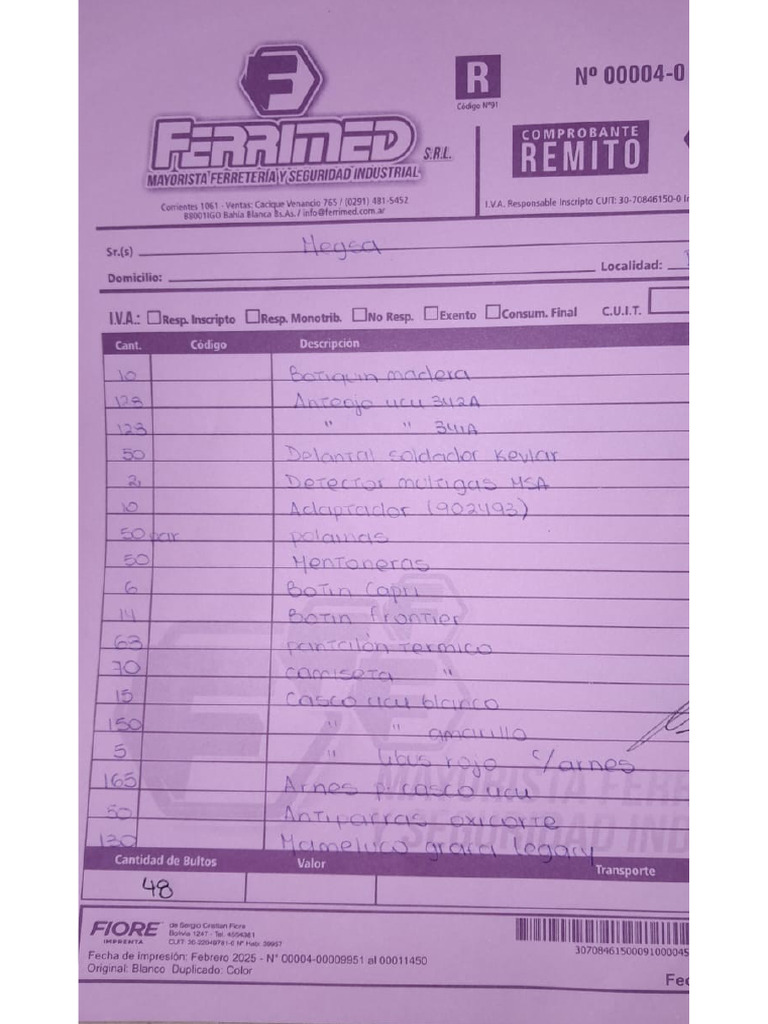 F
R
Nº 00004-0
Código Nº91
FERRIMED S.R.L.
MAYORISTA FERRETERÍA Y SEGURIDAD INDUSTRIAL
COMPROBANTE
REMITO
Corrientes 1061 - Ventas: Cacique Venancio 765 / (0291) 481-5452
B8001IGO Bahía Blanca Bs.As. / info@ferrimed.com.ar
I.V.A. Responsable Inscripto CUIT: 30-70846150-0 I
Sr.(s) Megsa
Domicilio: Localidad:
I.V.A.: Resp. Inscripto Resp. Monotrib. No Resp. Exento Consum. Final C.U.I.T.
Cant. Código Descripción
10 Botiquin madera
123 Anteojo ucu 342A
123 " " 341A
50 Delantal soldador Kevlar
2 Detector multigas MSA
10 Adaptador (902493)
50 par polainas
50 Mentoneras
6 Botin Capri
14 Botin frontier
63 pantalón termico
70 camiseta "
15 casco ucu blanco
150 " " amarillo
5 " rojo c/arnes
165 Arnes p. casco ucu
50 Antiparras oxicorte
130 Mameluco grafa legary
MAYORISTA FERR
Y SEGURIDAD IND
Cantidad de Bultos Valor Transporte
48
FIORE
IMPRENTA
de Sergio Cristian Fiore
Bolivia 1247 - Tel. 4554361
Fecha de impresión: Febrero 2025 - N° 00004-00009951 al 00011450
Original: Blanco Duplicado: Color
30708461500091000045
Fec